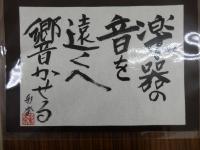 楽器の
音を
遠くへ
響かせる